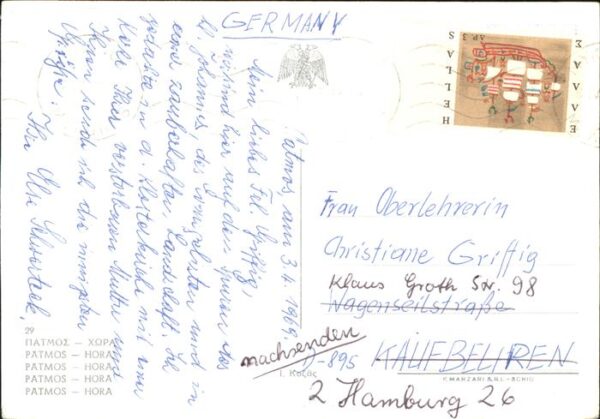 GERMANY
Patmos am 3.4.1969.
Mein liebes Frl. Griffig,
wir sind hier auf den Spuren des
hl. Johannes, des Evangelisten und in
einer zauberhaften Landschaft. Ich
gedachte in d. Klosterkirche mit einer
Kerze Ihrer verstorbenen Mutter und
Ihnen sende ich die innigsten
Grüße! Ihr Else
29
ΠΑΤΜΟΣ — ΧΩΡΑ
PATMOS — HORA
PATMOS — HORA
PATMOS — HORA
PATMOS — HORA
ΕΛΛΑΣ
HELLAS
ΔΡ 3
Frau Oberlehrerin
Christiane Griffig
Klaus Groth Str. 98
Nagenseilstraße
nachsenden
D-895 KAUFBEUREN
2 Hamburg 26